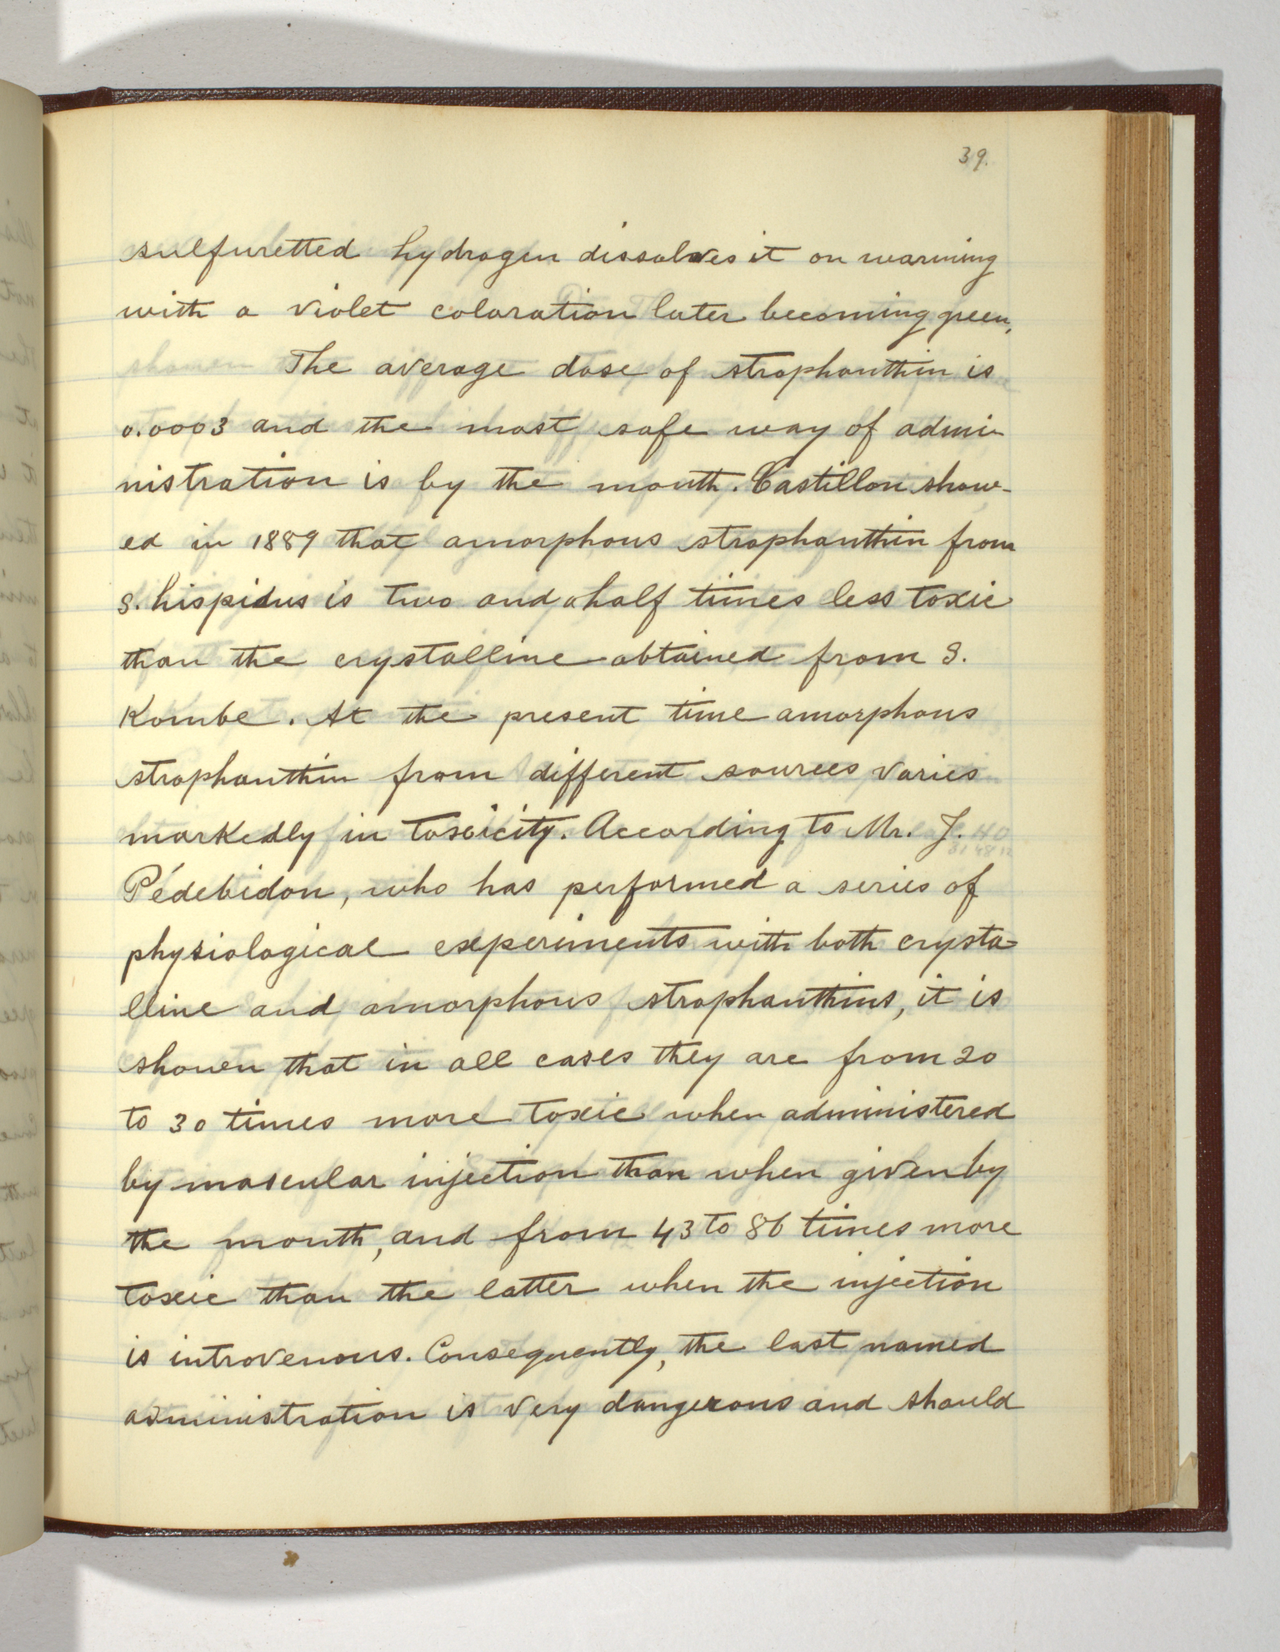 39.
sulfuretted hydrogen dissolves it on warming
with a violet coloration later becoming green.
The average dose of strophanthin is
0.0003 and the most safe way of admi-
nistration is by the mouth. Castillon show-
ed in 1889 that amorphous strophanthin from
S. hispidus is two and a half times less toxic
than the crystalline obtained from S.
Kombe. At the present time amorphous
strophanthin from different sources varies
markedly in toxicity. According to Mr. J.
Pédebidon, who has performed a series of
physiological experiments with both crysta-
lline and amorphous strophanthins, it is
shown that in all cases they are from 20
to 30 times more toxic when administered
by mascular injection than when given by
the mouth, and from 43 to 86 times more
toxic than the latter when the injection
is intravenous. Consequently, the last named
administration is very dangerous and should